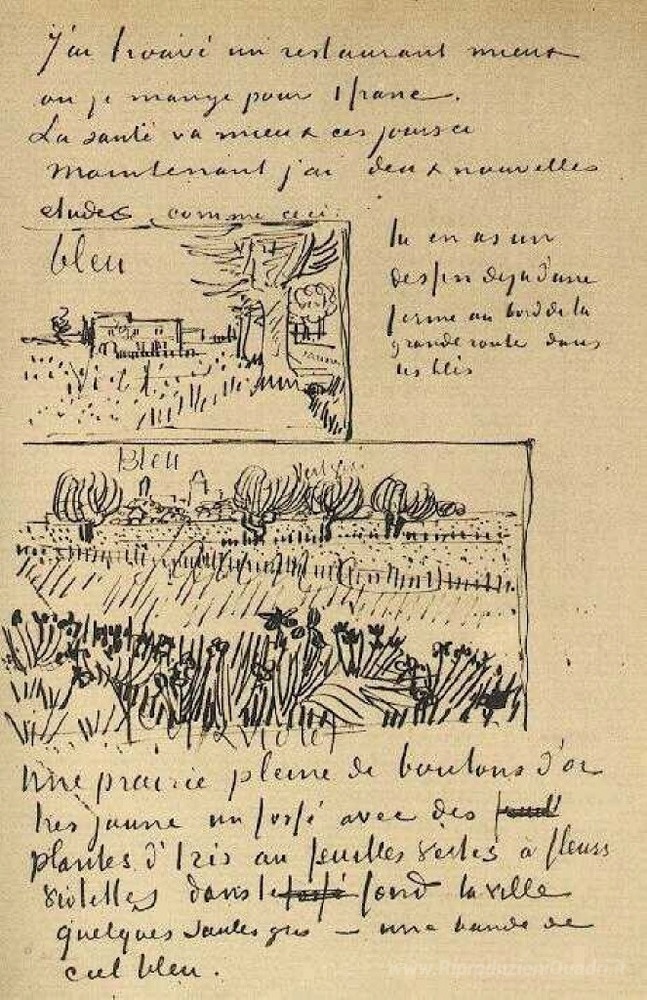 J'ai trouvé un restaurant mieux
ou je mange pour 1 franc.
La santé va mieux ces jours ci
Maintenant j'ai deux nouvelles
etudes comme ceci:
bleu
Tu en as un
dessin deja d'une
ferme au bord de la
grande route dans
les blés
Bleu
violet
Une prairie pleine de boutons d'or
tres jaune un fossé avec des
plantes d'Iris au feuilles vertes à fleurs
violettes dans le fossé fond la ville
quelques saules gris – une bande de
ciel bleu.